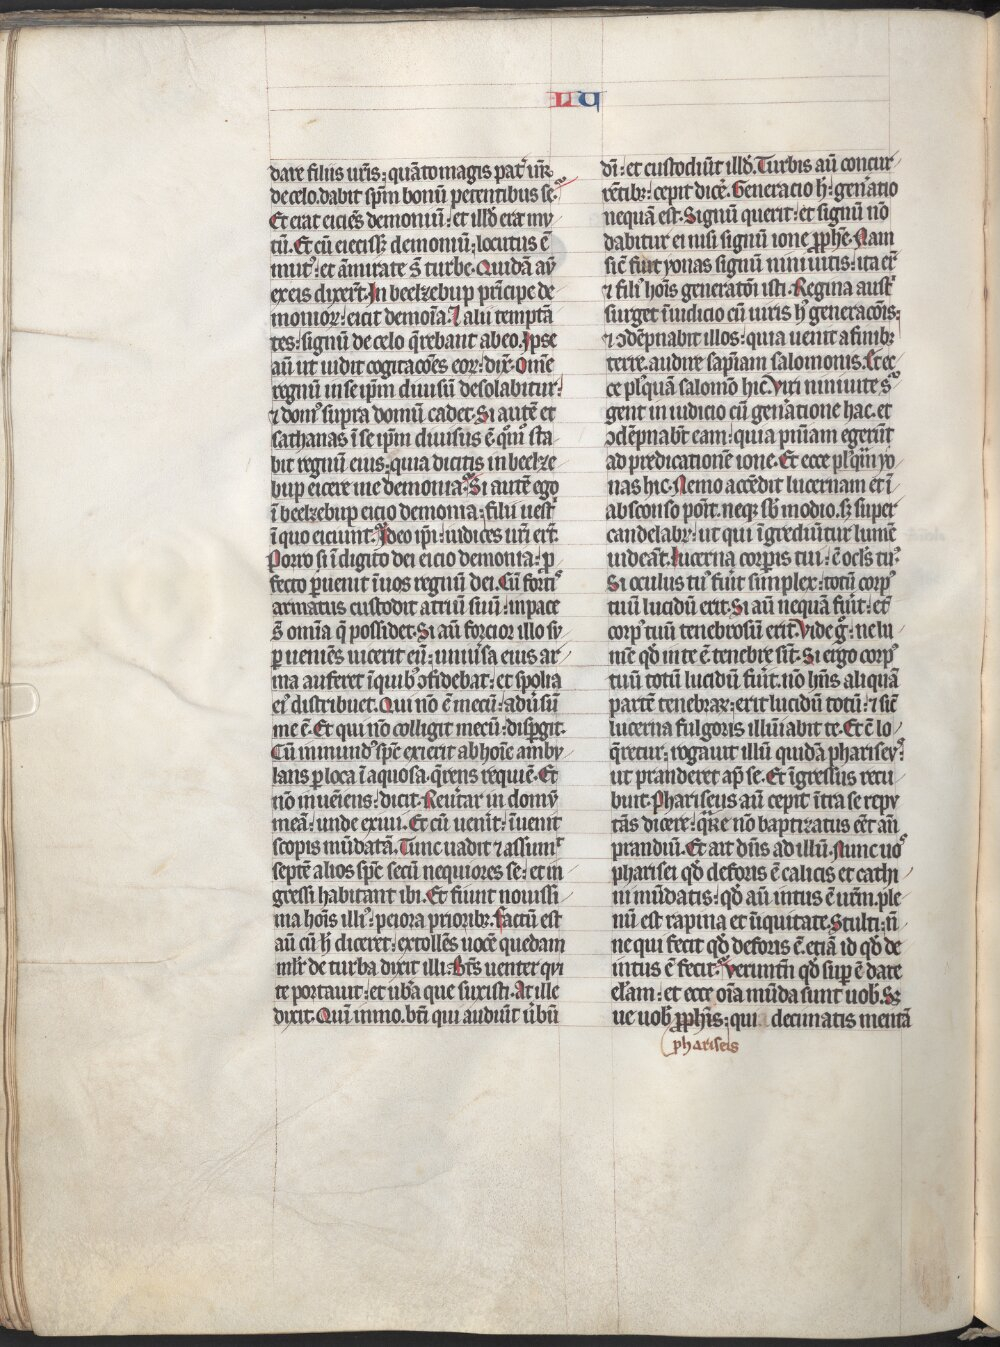 LU
dare filiis ur̃is: quãtomagis pat᷑ ur̃
de celo. dabit sp̃m bonũ petentibus se.
Et erat eiciẽs demoniũ: et illđ erat mu
tũ. Et cũ eiecisꝫ demoniũ: locutus ẽ
mutꝰ: et am̃irate s̃t turbe. Quidã aũ
ex eis dixert̃. In beelzebup prĩcipe de
monioꝝ: eicit demoĩa. ⁊ alii temptã
tes: signũ de celo q̃rebant ab eo. Ipse
aũ ut uidit cogitacões eoꝝ: dix̃. Om̃e
regnũ in se ip̃m diuisũ desolabitur:
⁊ domꝰ supra domũ cadet. Si autẽ et
sathanas ĩ se ip̃m diuisus ẽ: qm̃o sta
bit regnũ eius: quia dicitis in beelze
bup eicere me demonia. Si autẽ ego
ĩ beelzebup eicio demonia: filii uest᷑
ĩ quo eiciunt. Ideo ip̃i: iudices ur̃i ert̃.
Porro si ĩ digito dei eicio demonia: ꝓ
fecto ꝑuenit ĩ uos regnũ dei. Cũ fortis
armatus custodit atriũ suũ: in pace
s̃t omĩa q̃ possidet. Si aũ forcior illo su
ꝑueniẽs uicerit eũ: uniũsa eius ar
ma auferet ĩ quibꝰ ↄfidebat: et spolia
eiꝰ distribuet. Qui nõ ẽ mecũ: adũsũ
me ẽ. Et qui nõ colligit mecũ: disꝑgit.
Cũ inmundꝰ sp̃c exierit ab hoĩe ambu
lans ꝑ loca ĩaquosa. q̃rens requiẽ. Et
nõ inueĩens: dicit. Reũtar in domũ
meã: unde exiui. Et cũ uenĩt: ĩuenit
scopis mũdatã. Tunc uadit ⁊ assumit
septẽ alios sp̃c secũ nequiores se: et in
gressi habitant ibi. Et fiunt nouissi
ma hoĩs illiꝰ: peiora prioribꝫ. Factũ est
aũ cũ h̃ diceret: extollẽs uocẽ quedam
mlr̃ de turba dixit illi. Bt̃s uenter qui
te portauit: et ub̃a que suxisti. At ille
dixit. Quĩ immo. bt̃i qui audiũt ũbũ
dĩ: et custodiũt illđ. Turbis aũ concur
rẽtibꝫ: cepit dicẽ. Generacio h̃: gen̾atio
nequã est. Signũ querit: et signũ nõ
dabitur ei nisi signũ ione ꝓphẽ. Nam
sic̃ fuit yonas signũ niniuitis: ita erit
⁊ filiꝰ hoĩs generatõi isti. Regina aust᷑
surget ĩ iudicio cũ uiris hꝰ generacõis:
⁊ ↄdẽpnabit illos: quia uenit a finibꝫ
terre. audire sap̃iam salomonis. Et ec
ce plꝰquã salomõ hic. Viri niniuite sur
gent in iudicio cũ gen̾atione hac. et
ↄdẽpnabt̃ eam: quia pñiam egerũt
ad predicationẽ ione. Et ecce plꝰqᷓm yo
nas hic. Nemo accẽdit lucernam et ĩ
absconso põit. neqꝫ sb̃ modio. sꝫ super
candelabꝝ: ut qui ĩgrediũtur lumẽ
uideãt. Lucerna corꝑis tui: ẽ ocl̃s tuꝰ.
Si oculus tuꝰ fuĩt simplex: totũ corpꝰ
tuũ lucidũ erit. Si aũ nequã fuĩt: et̃
corpꝰ tuũ tenebrosũ erit. Vide g̊: ne lu
mẽ qđ in te ẽ tenebre sĩt. Si ergo corpꝰ
tuũ totũ lucidũ fuĩt. nõ hñs aliquã
partẽ tenebraꝝ: erit lucidũ totũ: ⁊ sic̃
lucerna fulgoris illũiabit te. Et cũ lo
q̃retur: rogauit illũ quidã phariseuꝰ:
ut pranderet ap̃ se. Et ĩgressus recu
buit. Phariseus aũ cepit ĩtra se repu
tãs dicere: qᷓre nõ baptizatus eẽt añ
prandiũ. Et ait dñs ad illũ. Nunc uos
pharisei qđ deforis ẽ calicis et cathi
ni mũdatis: qđ aũ intus ẽ ur̃m. ple
nũ est rapina et ĩiquitate. Stulti: ñ
ne qui fecit qđ deforis ẽ. etiã id qđ de
intus ẽ fecit. Verumtñ qđ suꝑ ẽ date
el̃am: et ecce oĩa mũda sunt uob̃. Sꝫ
ue uob̃ ꝓph̃is: qui decimatis mentã
phariseis